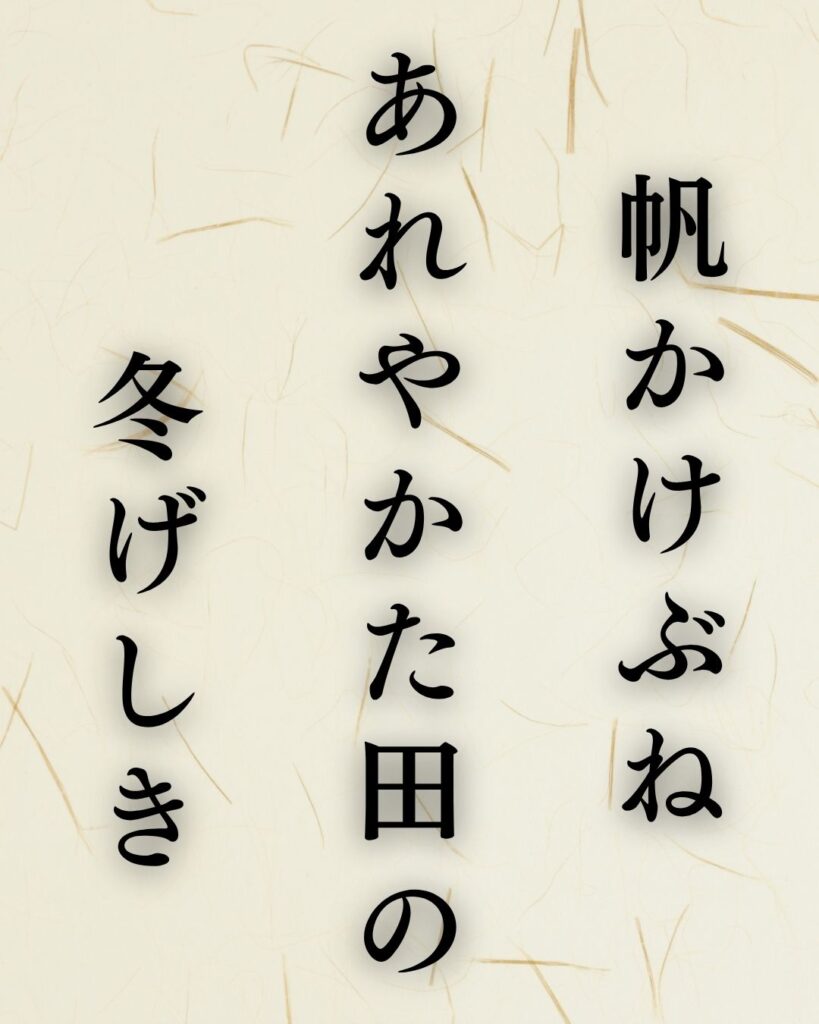 帆かけぶね
あれやかた田の
冬げしき